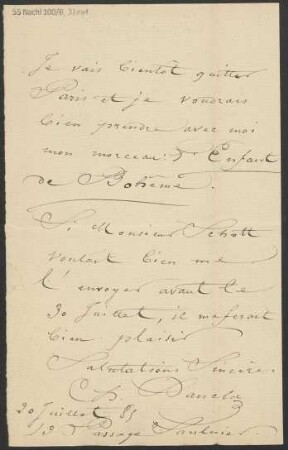 55 Nachl 100/B,
Je vais bientôt quitter
Paris et je voudrais
bien prendre avec moi
mon morceau: d'Enfant
de Bohême.
Si Monsieur Schott
voulait bien me
l'envoyer avant le
30 Juillet, il me ferait
bien plaisir
Salutations Sincères
Ch. Dancla
20 Juillet 85
Passage Saulnier.